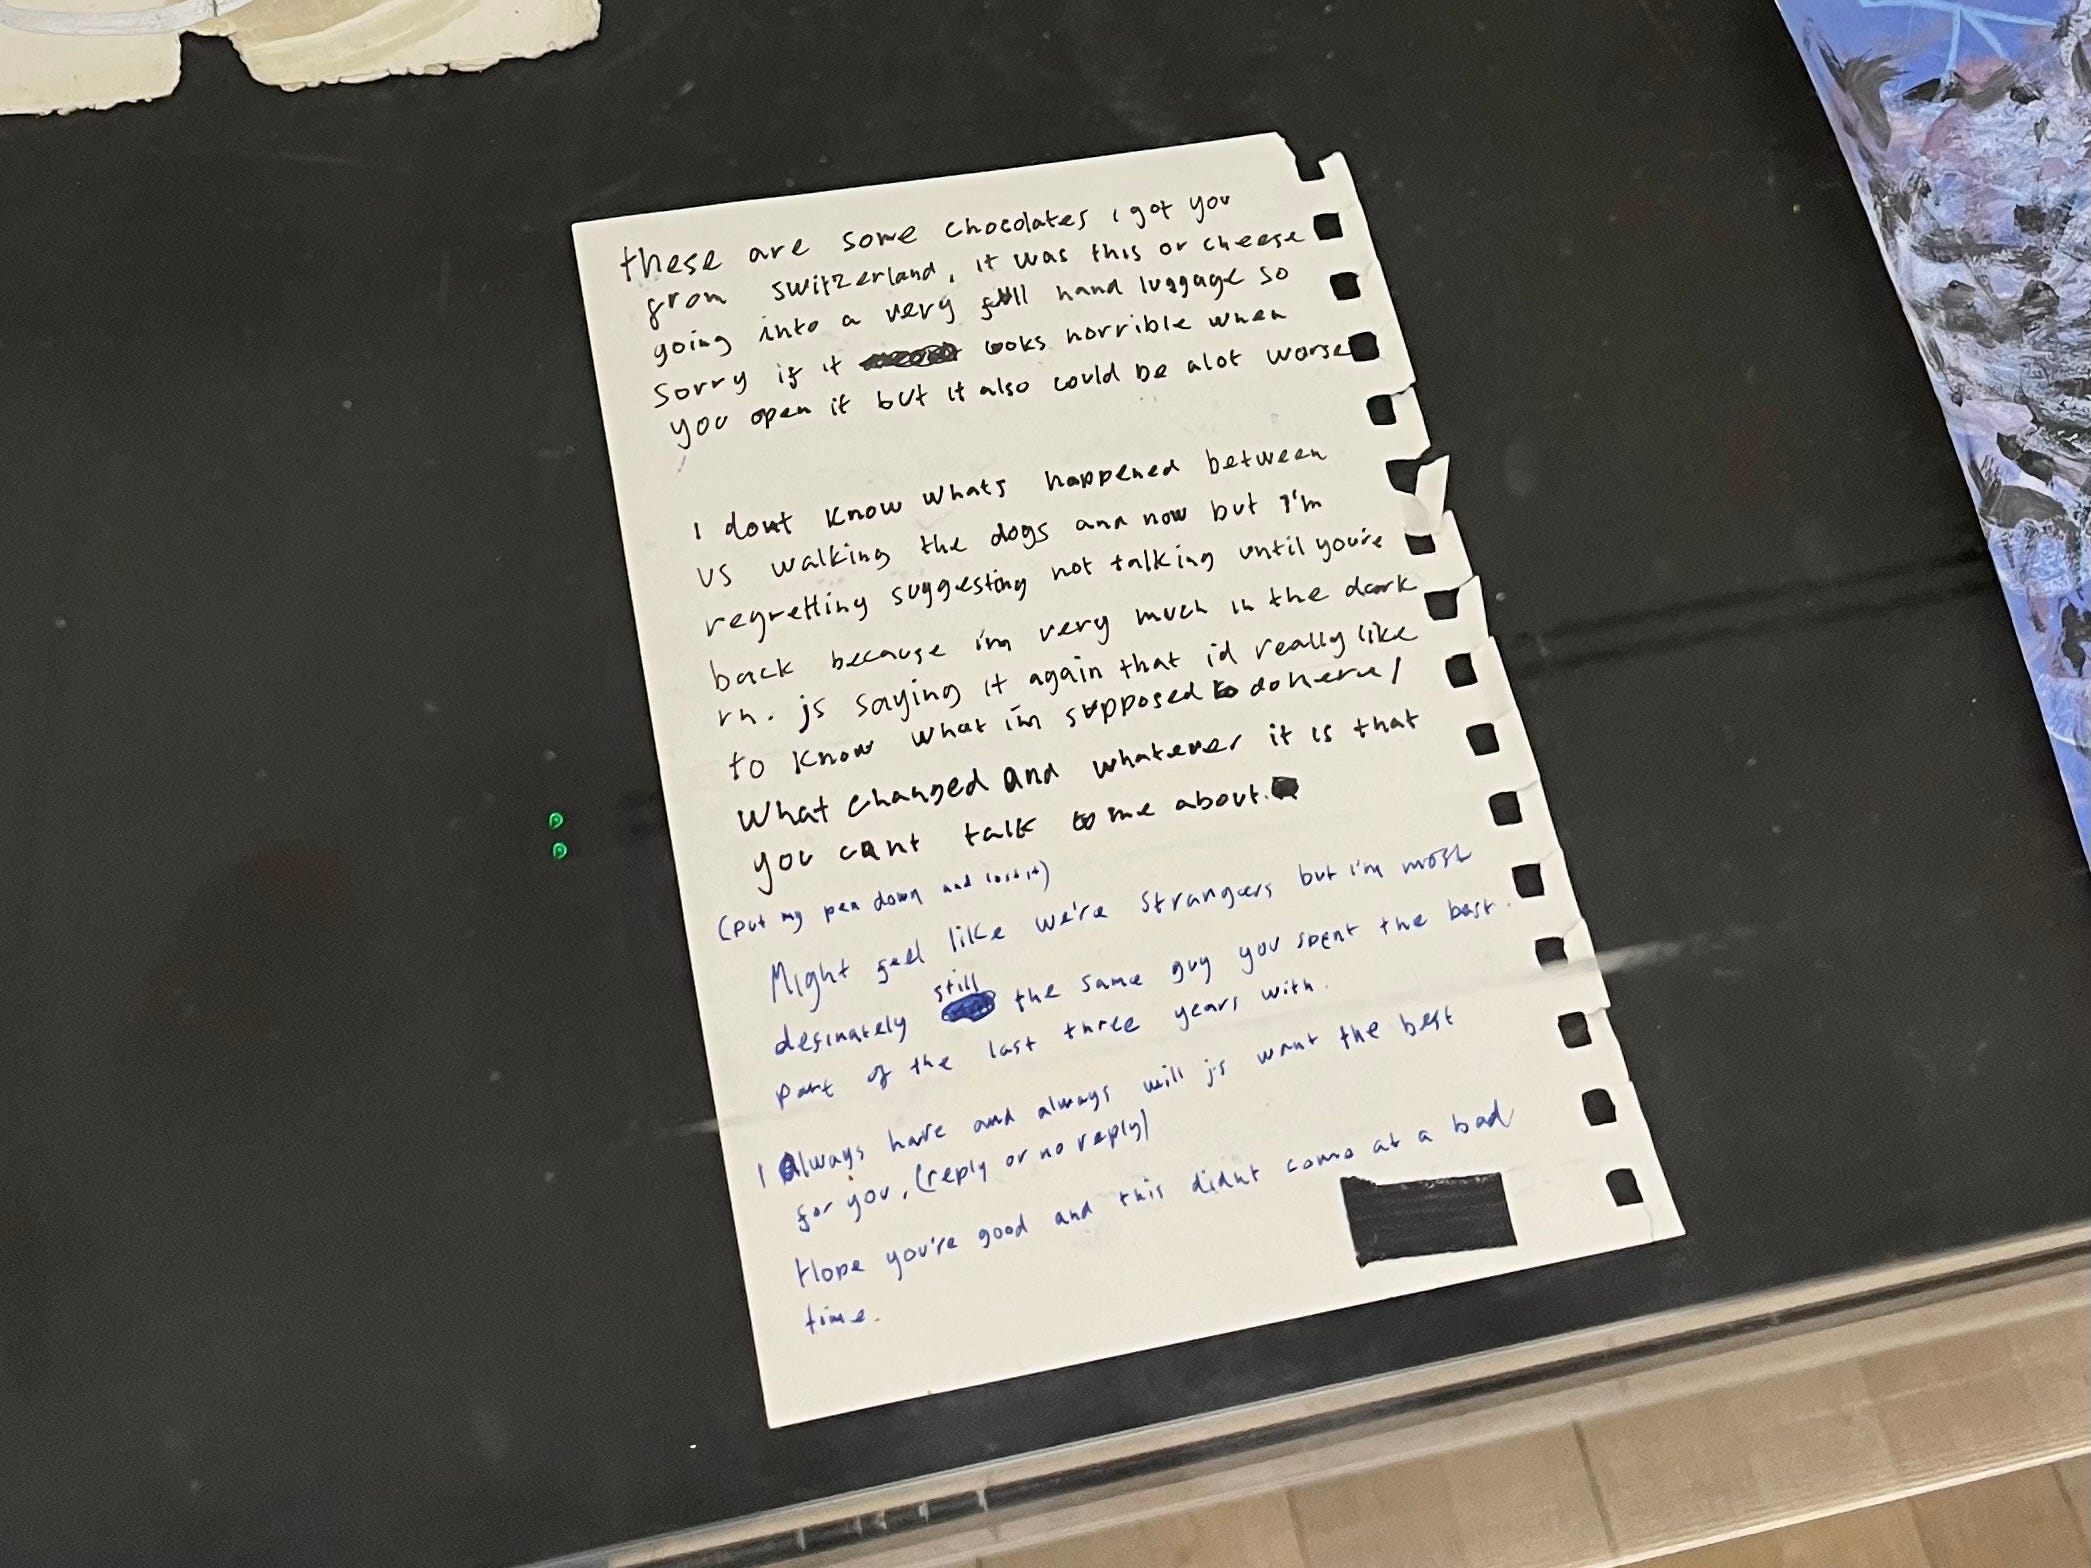 these are some chocolates i got you
from switzerland, it was this or cheese
going into a very full hand luggage so
sorry if it looks horrible when
you open it but it also could be alot worse
I dont know whats happened between
us walking the dogs and now but I'm
regretting suggesting not talking until you're
back because i'm very much in the dark
rn. js saying it again that id really like
to know what i'm supposed to do here/
what changed and whatever it is that
you cant talk to me about.
(put my pen down and lost it)
Might feel like we're strangers but i'm most
definately still the same guy you spent the best
part of the last three years with.
I always have and always will js want the best
for you. (reply or no reply)
Hope you're good and this didnt come at a bad
time.